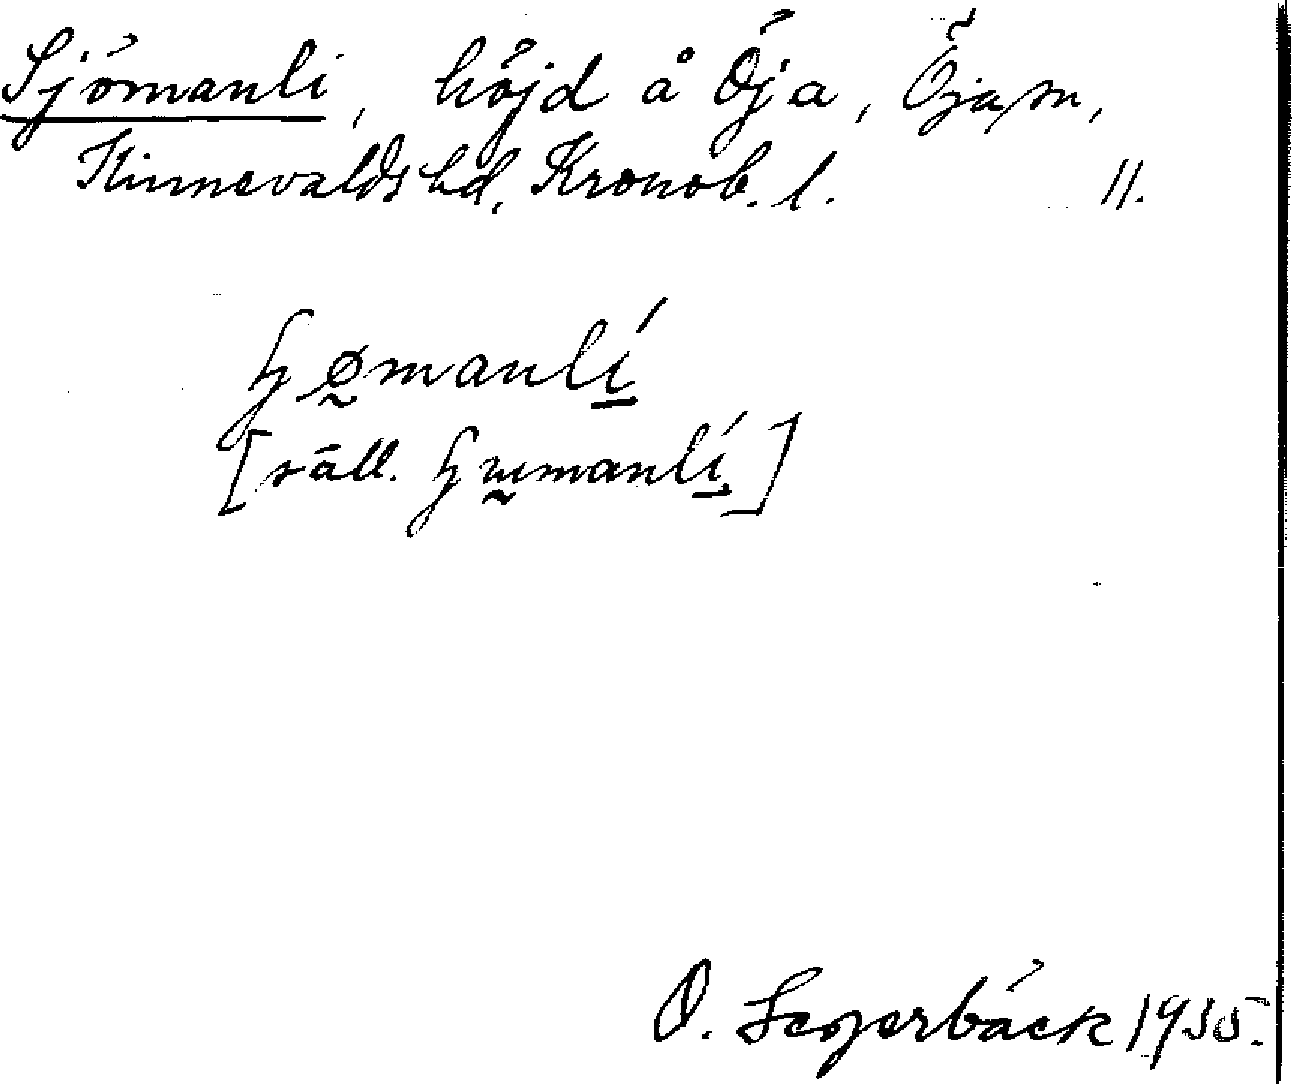 Sjömanli, höjd å Öja, Öja sn,
Kinnevalds hd, Kronob. l. 11.
ɧø̰manlí
[säll. ɧɯ̰manlí]
O. Segerbäck 1935.